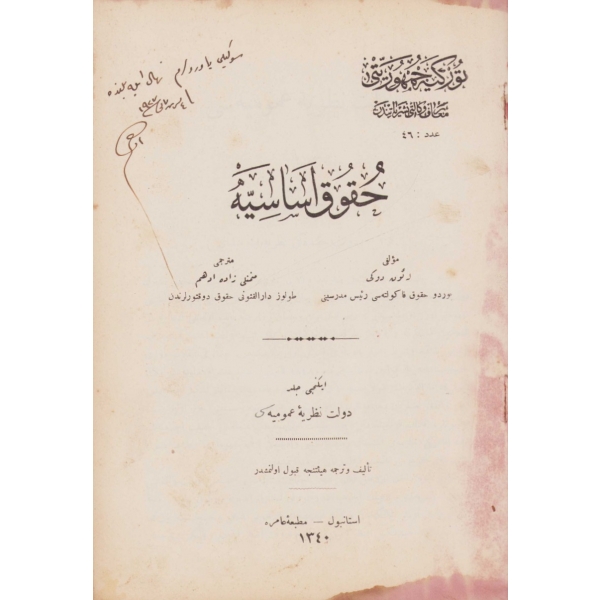 توركيه جمهوريتى
معارف وكالتى نشرياتندن
عدد : ٤٦
حُقُوق اَسَاسِيَّه
مؤلفى
لئون دوكى
بوردو حقوق فاكولته‌سى رئيس مدرسينى
مترجمى
زاده ادهم
طولوز دارالفنونى حقوق دوقتورلرندن
ايكنجى جلد
دولت نظريهٔ عموميه‌سى
تأليف وترجمه هيئتنجه قبول اولنمشدر
استانبول — مطبعهٔ عامره
١٣٤٠